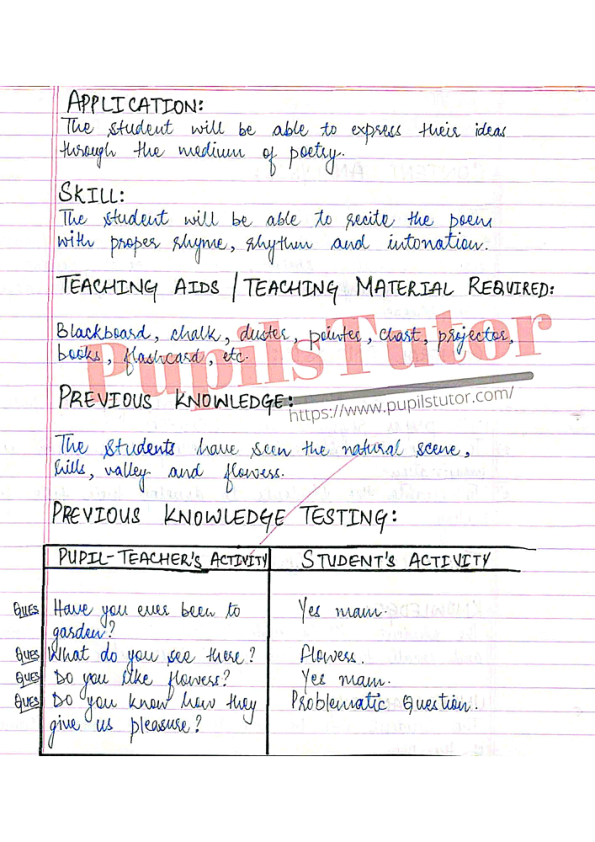 APPLICATION:
The student will be able to express their ideas
through the medium of poetry.
SKILL:
The student will be able to recite the poem
with proper rhyme, rhythm and intonation.
TEACHING AIDS / TEACHING MATERIAL REQUIRED:
Blackboard, chalk, duster, pointer, chart, projector,
books, flashcard, etc.
PupilsTutor
https://www.pupilstutor.com/
PREVIOUS KNOWLEDGE:
The students have seen the natural scene,
hills, valley and flowers.
PREVIOUS KNOWLEDGE TESTING:
PUPIL-TEACHER'S ACTIVITY STUDENT'S ACTIVITY
QUES Have you ever been to Yes mam.
garden?
QUES What do you see there? Flowers.
QUES Do you like flowers? Yes mam.
QUES Do you know how they Problematic Question.
give us pleasure?